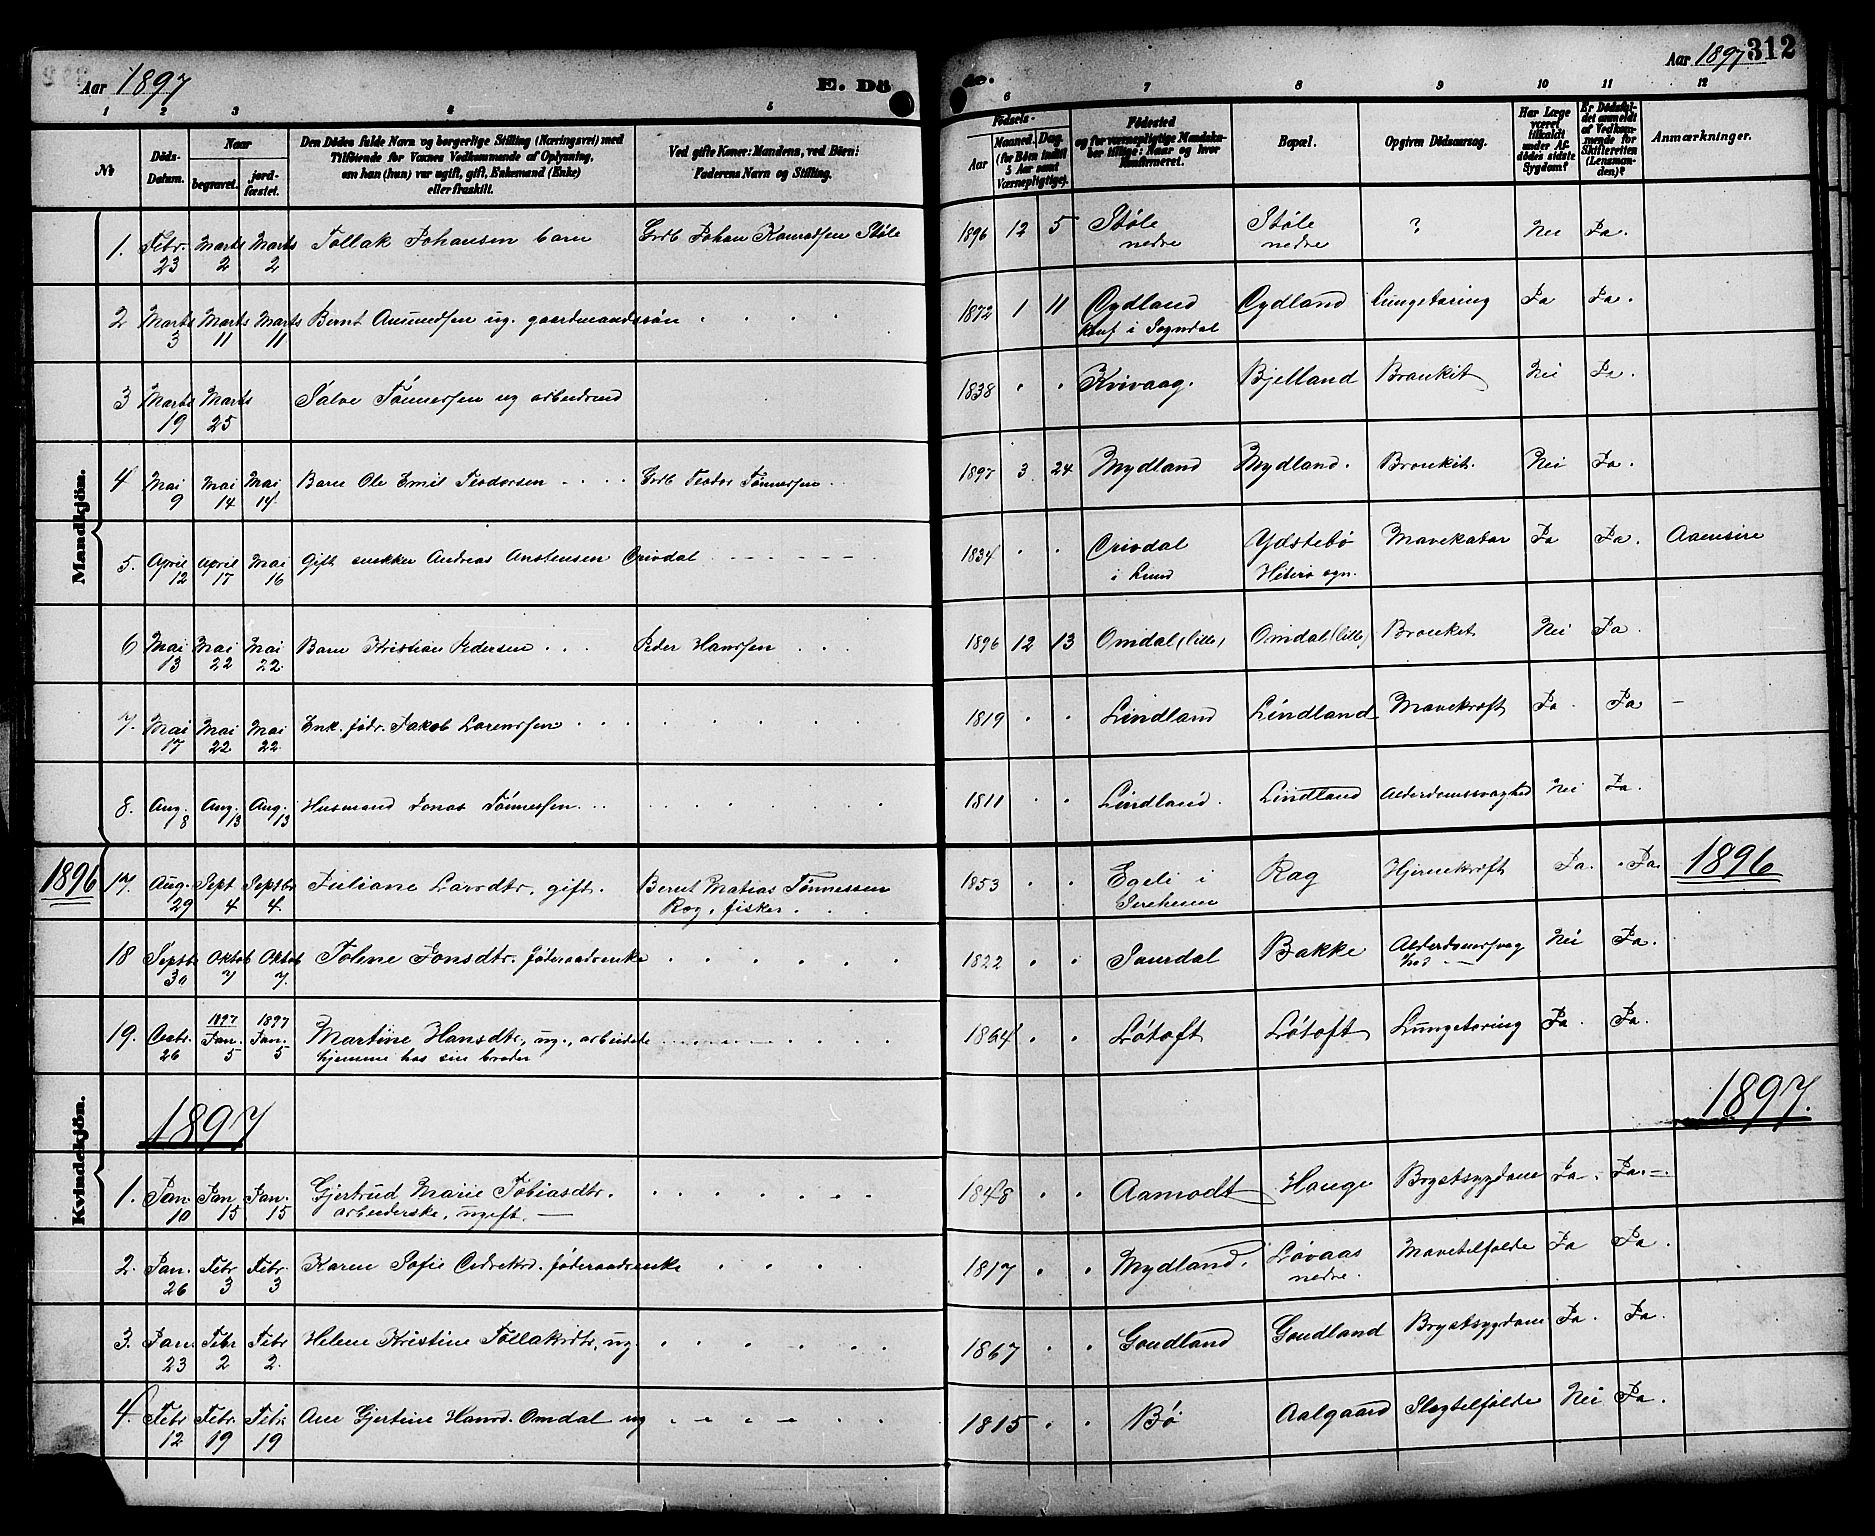 Aar 1897
E. Dö
de.
Aar 1897 312
1 2 3 4 5 6 7 8 9 10 11 12
№
Döds-Datum.
Naar
begravet.
jordfæstet.
Den Dödes fulde Navn og borgerlige Stilling (Næringsvei) med
Tilföiende for Voxnes Vedkommende af Oplysning,
om han (hun) var ugift, gift, Enkemand (Enke)
eller fraskilt.
Ved gifte Koner: Mandens, ved Börn:
Faderens Navn og Stilling.
Födsels-
Aar
Maaned. Dag.
(for Börn indtil
5 Aar samt
Værnepligtige).
Födested
og for værnepligtige Mandskaber
tillige: Naar og hvor
Konfirmeret.
Bopæl.
Opgiven Dödsaarsag.
Har Læge
været
tilkaldt
under Afdödes
sidste
Sygdom?
Er Dödsfaldet
anmeldt
af Vedkommende
for
Skifteretten
(Lensmanden)?
Anmærkninger.
Mandkjön.
1. Febr. 23 Marts 2 Marts 2 Tollak Johansen barn Grdb Johan Konradsen Støle 1896 12 5 Støle nedre Støle nedre ? Nei Ja.
2 Marts 3 Marts 11 Marts 11 Bernt Amundsen ug. gaardmandssøn 1872 1 11 Øydland Konf i Sogndal Øydland Lungetæring Ja Ja.
3 Marts 19 Marts 25 Salve Tønnessen ug arbeidsmd 1838 Kvivaag. Bjelland Bronkit Nei Ja.
4 Mai 9 Mai 14 Mai 14 Barn Ole Emil Teodorsen Grdb Teodor Tønnessen 1897 3 24 Mydland Mydland. Bronkit. Nei Ja.
5. April 12 April 17 Mai 16 Gift snekker Andreas Anstensen Orrvdal 1834 Orrvdal i Lund Ydstebø Hiterø sogn. Mavekatar Ja Ja. Aaensire
6 Mai 13 Mai 22 Mai 22 Barn Kristian Pedersen Peder Hanssen 1896 12 13 Omdal (lille) Omdal (lille) Bronkit Nei Ja.
7. Mai 17 Mai 22 Mai 22 Enk. fødr. Jakob Lorenssen 1819 Lindland Lindland Mavekræft Ja. Ja
8. Aug. 8 Aug. 13 Aug. 13 Husmand Jonas Tønnessen 1811 Lindland. Lindland Alderdomssvaghed Nei Ja.
1896 17. Aug. 29 Sept 4 Septbr 4. Juliane Larsdtr, gift. Bernt Matias Tønnessen Rag, fisker 1853 Egeli i Sireheien Rag Hjernekræft Ja. Ja. 1896
18 Septb 30 Oktob 7 Oktob 7. Toline Jonsdtr. føderaadsenke 1822 Saurdal Bakke Alderdomssvaghed Nei Ja.
19. Decbr. 26 1897 Jan. 5 1897 Jan. 5 Martine Hansdtr, ug., arbeidete hjemme hos sin broder 1864 Løtoft Løtoft Lungetæring Ja. Ja.
Kvindekjön.
1897 1897.
1. Jan. 10 Jan. 15 Jan. 15 Gjertrud Marie Tobiasdtr. arbeiderske, ugift. 1848 Aamodt Hauge Brystsygdom Ja. Ja.
2. Jan. 26 Febr 3 Febr. 3 Karen Sofie føderaadsenke 1817 Mydland. Løvaas nedre. Mavetilfælde Ja Ja.
3. Jan. 23 Febr 2 Febr 2. Helene Kristine Tollaksdtr, ug. 1867 Goudland Goudland Brystsygdom Ja. Ja.
4. Febr 12 Febr. 19 Febr. 19 Ane Gjertine Hansd. Omdal ug 1815 Bø Aalgaard Slagtilfælde Nei Ja.